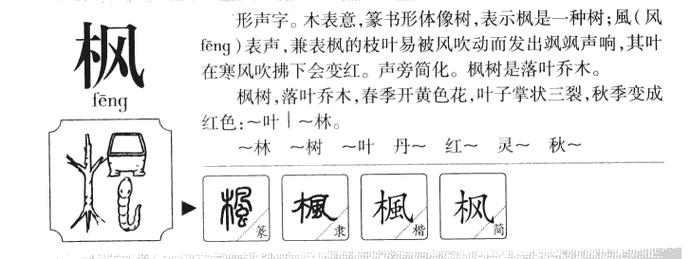 枫
fēng
形声字。木表意,篆书形体像树,表示枫是一种树;風(风
fēng)表声,兼表枫的枝叶易被风吹动而发出飒飒声响,其叶
在寒风吹拂下会变红。声旁简化。枫树是落叶乔木。
枫树,落叶乔木,春季开黄色花,叶子掌状三裂,秋季变成
红色:～叶｜～林。
～林 ～树 ～叶 丹～ 红～ 灵～ 秋～
楓 篆 楓 隶 楓 楷 枫 简